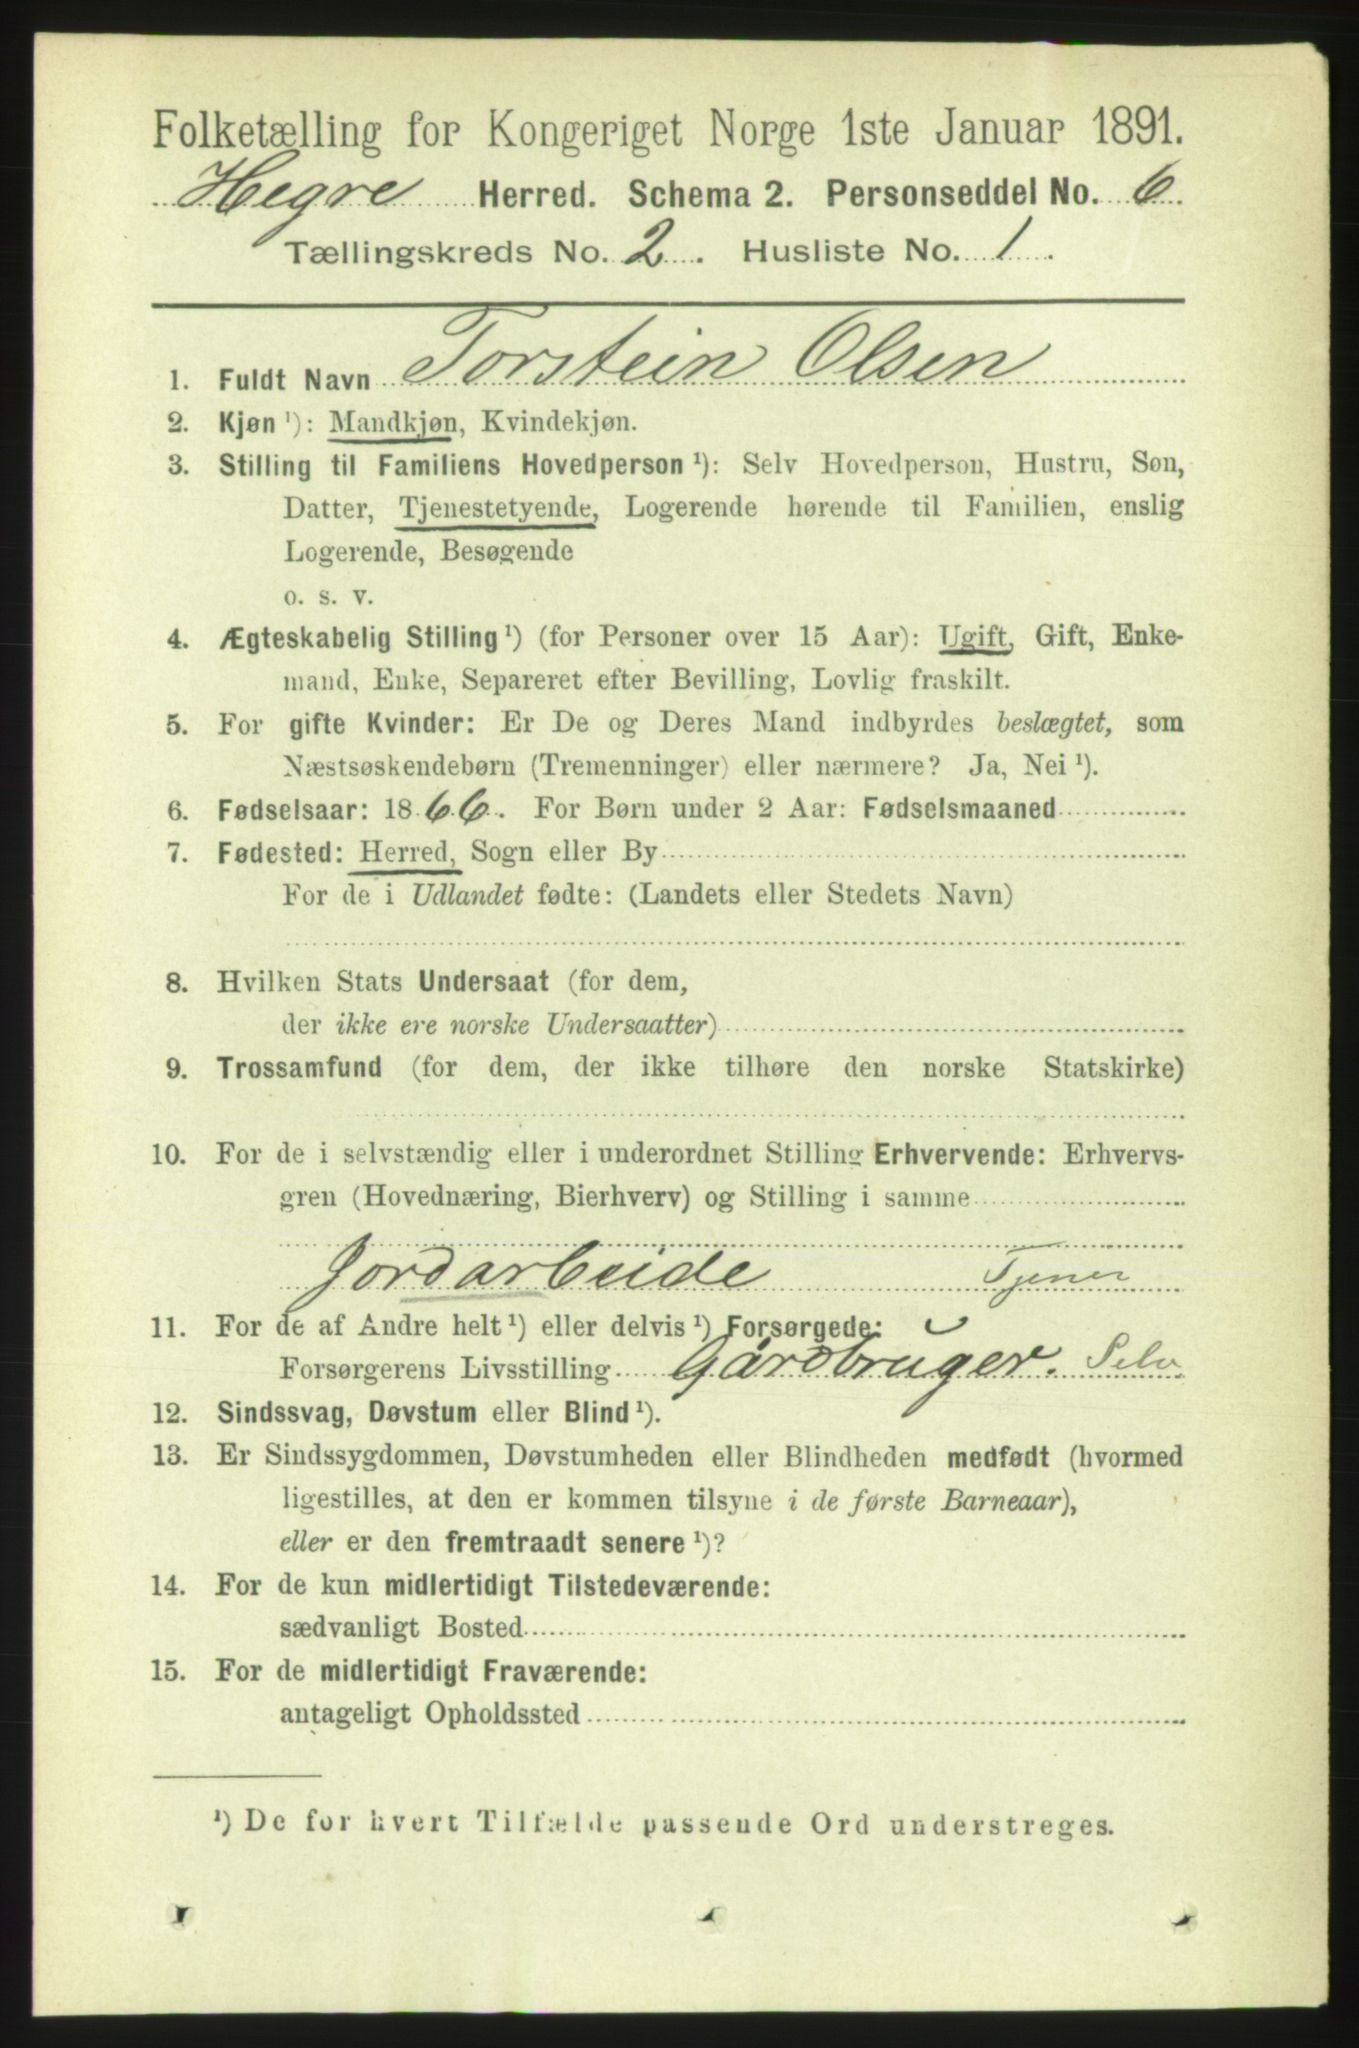 Folketælling for Kongeriget Norge 1ste Januar 1891.
Hegre Herred. Schema 2. Personseddel No. 6
Tællingskreds No. 2. Husliste No. 1.
1. Fuldt Navn Torstein Olsen
2. Kjøn ¹): Mandkjøn, Kvindekjøn.
3. Stilling til Familiens Hovedperson ¹): Selv Hovedperson, Hustru, Søn,
Datter, Tjenestetyende, Logerende hørende til Familien, enslig
Logerende, Besøgende
o. s. v.
4. Ægteskabelig Stilling ¹) (for Personer over 15 Aar): Ugift, Gift, Enke-
mand, Enke, Separeret efter Bevilling, Lovlig fraskilt.
5. For gifte Kvinder: Er De og Deres Mand indbyrdes beslægtet, som
Næstsøskendebørn (Tremenninger) eller nærmere? Ja, Nei ¹).
6. Fødselsaar: 1866. For Børn under 2 Aar: Fødselsmaaned
7. Fødested: Herred, Sogn eller By
For de i Udlandet fødte: (Landets eller Stedets Navn)
8. Hvilken Stats Undersaat (for dem,
der ikke ere norske Undersaatter)
9. Trossamfund (for dem, der ikke tilhøre den norske Statskirke)
10. For de i selvstændig eller i underordnet Stilling Erhvervende: Erhvervs-
gren (Hovednæring, Bierhverv) og Stilling i samme
Jordarbeide Tjener
11. For de af Andre helt ¹) eller delvis ¹) Forsørgede:
Forsørgerens Livsstilling Gårdbruger. Selv
12. Sindssvag, Døvstum eller Blind ¹).
13. Er Sindssygdommen, Døvstumheden eller Blindheden medfødt (hvormed
ligestilles, at den er kommen tilsyne i de første Barneaar),
eller er den fremtraadt senere ¹)?
14. For de kun midlertidigt Tilstedeværende:
sædvanligt Bosted
15. For de midlertidigt Fraværende:
antageligt Opholdssted
¹) De for hvert Tilfælde passende Ord understreges.